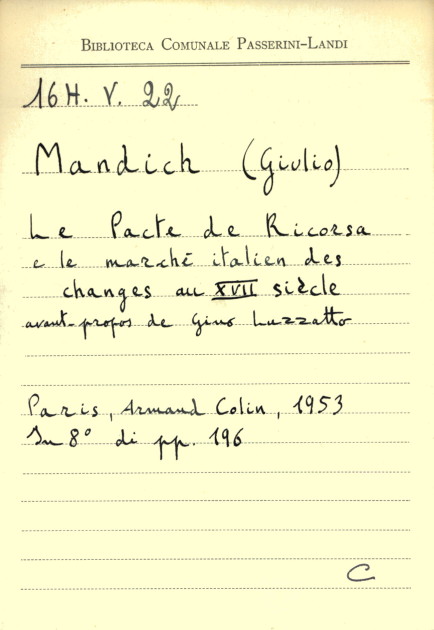 BIBLIOTECA COMUNALE PASSERINI-LANDI
16 H. V. 22
Mandich (Giulio)
Le Pacte de Ricorsa
e le marché italien des
changes au XVII siècle
avant-propos de Gino Luzzatto
Paris, Armand Colin, 1953
In 8° di pp. 196
C